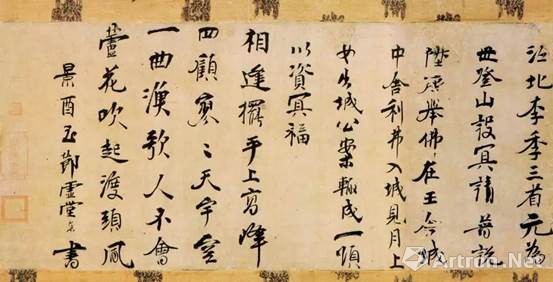 江北李季三首元為
世登山設冥請普説
陞座舉佛在王舍城
中舍利弗入城見月上
女出城公案輒成一頌
以資冥福
相逢擺手上高峰
四顧寥〻天宇空
一曲漁歌人不會
蘆花吹起渡頭風
景酉節靈書
Artron.Net